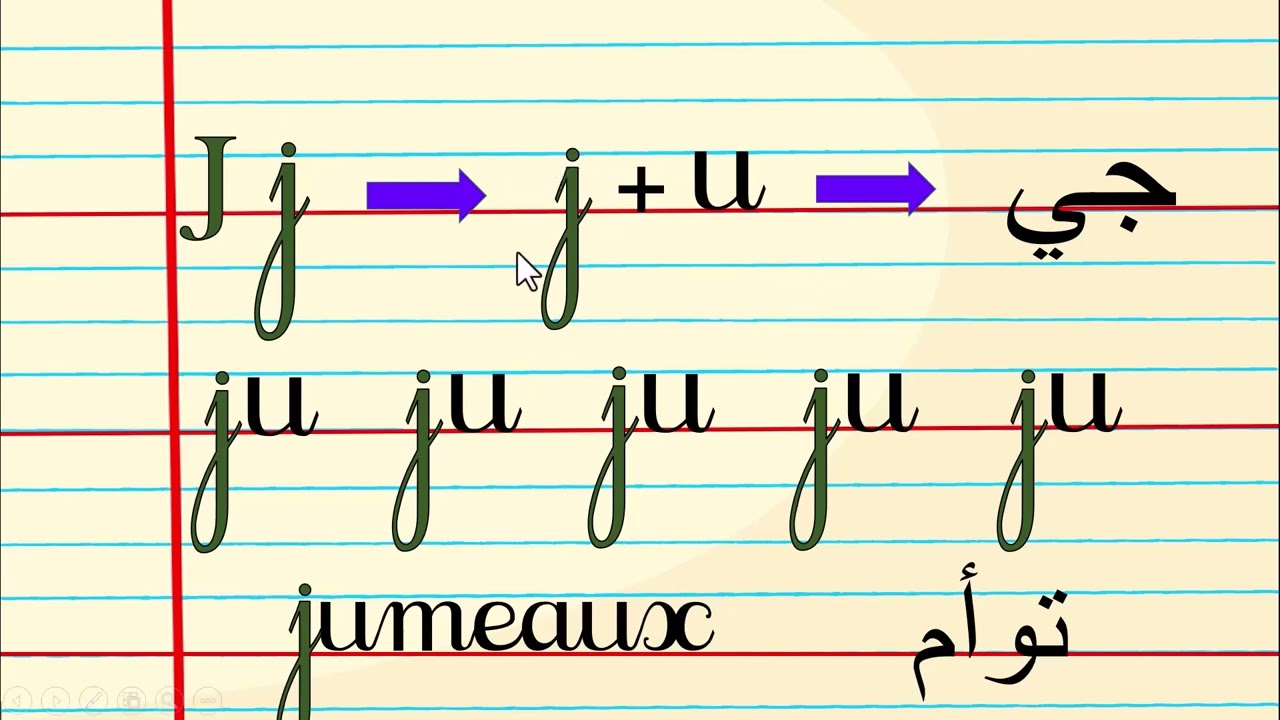 J j j + u جي
ju ju ju ju ju
jumeaux توأم